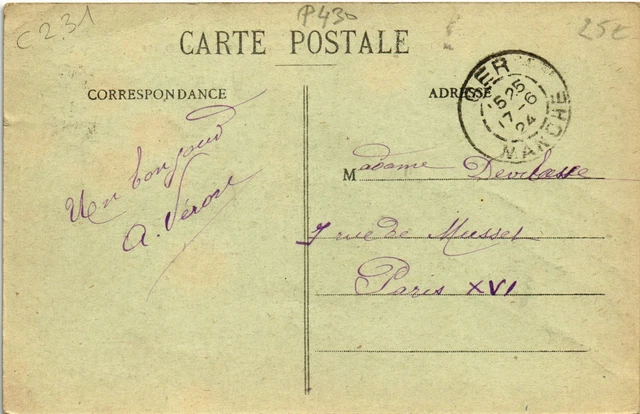 C 2.31
P430
25€
CARTE POSTALE
CORRESPONDANCE
ADRESSE
GER
15 25
17 - 6
24
MANCHE
Un bonjour
A. Véron
Madame
7 rue de Musset
Paris XVI